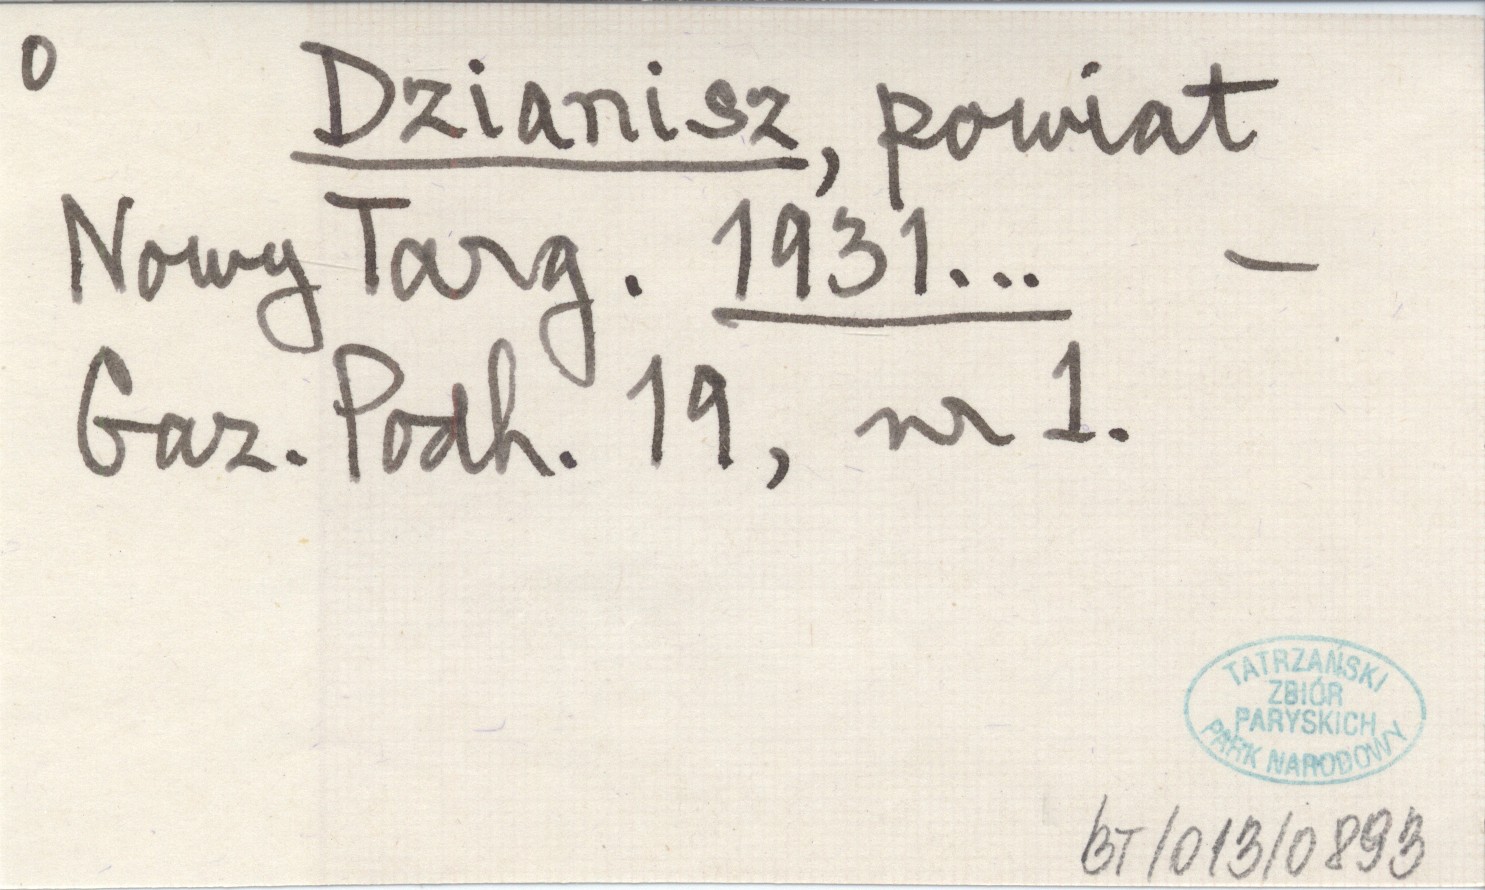 0
Dzianisz, powiat
Nowy Targ. 1931... –
Gaz. Podh. 19, nr 1.
TATRZAŃSKI
ZBIÓR
PARYSKICH
PARK NARODOWY
BT/013/0893